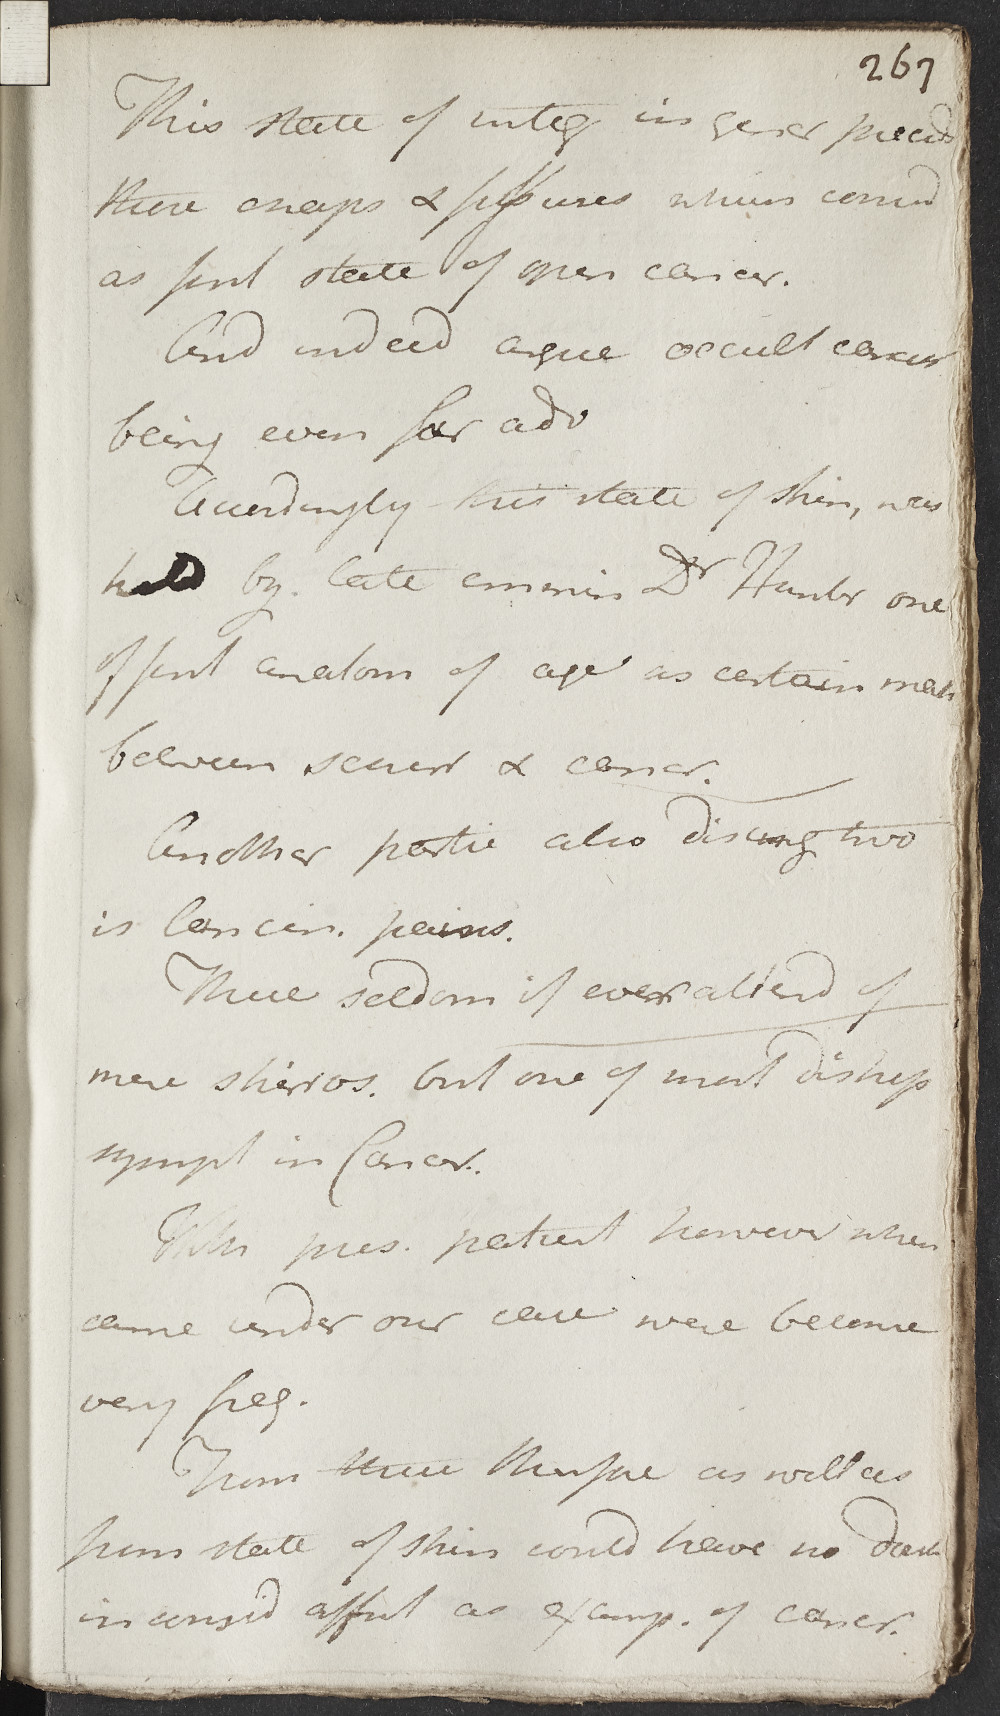 267
This state of integ in gener preced
those chaps & fissures which consid
as first state of open cancer.
And indeed argue occult cancer
being even far adv
Accordingly this state of skin, was
held by late eminen Dr Hunter one
of first anatom of age as certain mark
between scirrh & cancer.
Another partic also disting two
is lancin. pains.
These seldom if ever attend of
mere skirros. but one of most distress
sympt in Cancer.
With pres. patient however when
came under our care were become
very freq.
From these therfore as well as
from state of skin could have no doub
in consid affect as examp. of cancer.